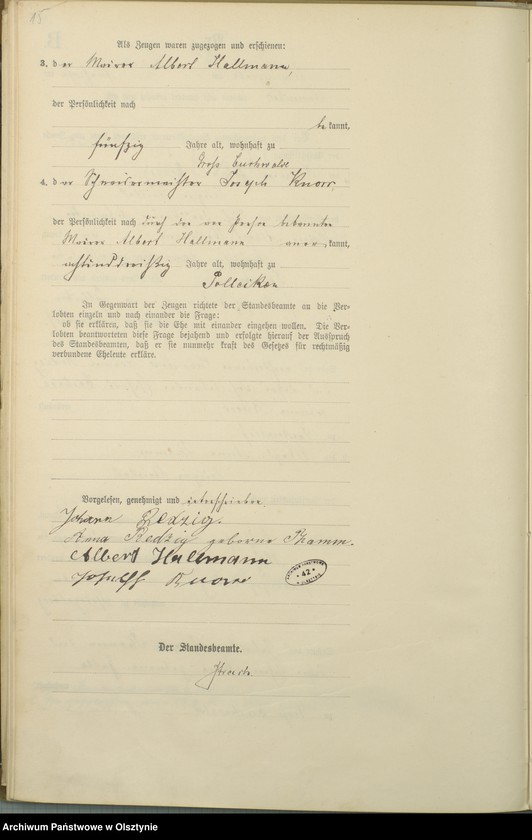 15
Als Zeugen waren zugezogen und erschienen:
3. der Maurer Albert Hallmann,
der Persönlichkeit nach
be kannt,
fünfzig Jahre alt, wohnhaft zu
Groß Buchwalde
4. der Schneidermeister Joseph Knorr,
der Persönlichkeit nach durch den von Person bekannten
Maurer Albert Hallmann aner kannt,
achtunddreißig Jahre alt, wohnhaft zu
Polleiken
In Gegenwart der Zeugen richtete der Standesbeamte an die Ver-
lobten einzeln und nach einander die Frage:
ob sie erklären, daß sie die Ehe mit einander eingehen wollen. Die Ver-
lobten beantworteten diese Frage bejahend und erfolgte hierauf der Ausspruch
des Standesbeamten, daß er sie nunmehr kraft des Gesetzes für rechtmäßig
verbundene Eheleute erkläre.
Vorgelesen, genehmigt und unterschrieben.
Johann Redzig.
Anna Redzig geborene Thamm.
Albert Hallmann
Joseph Knorr
* 42 *
Der Standesbeamte.
Archiwum Państwowe w Olsztynie